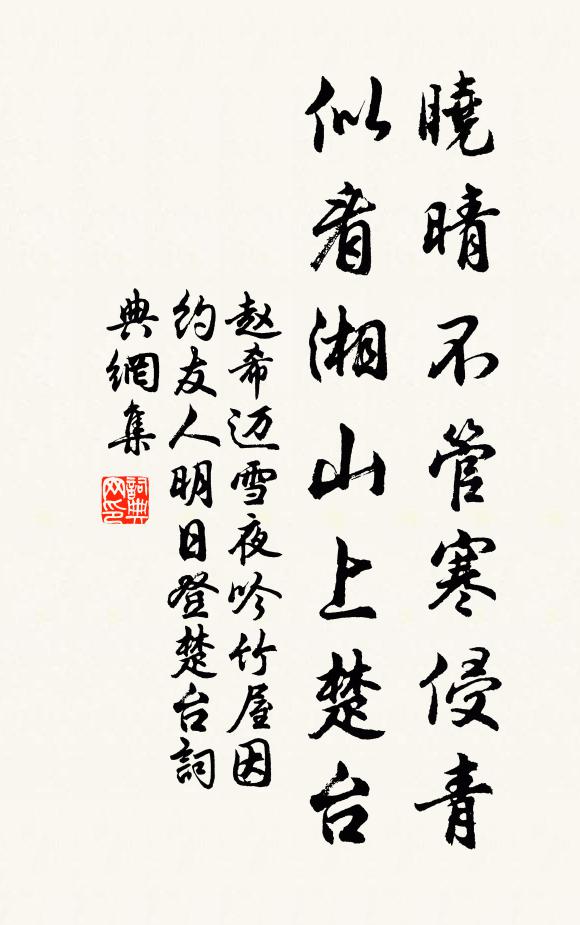 曉晴不管寒侵青
似看湘山上楚台
赵希迈雪夜吟竹屋因
约友人明日登楚台詞
典網集
詞典网印